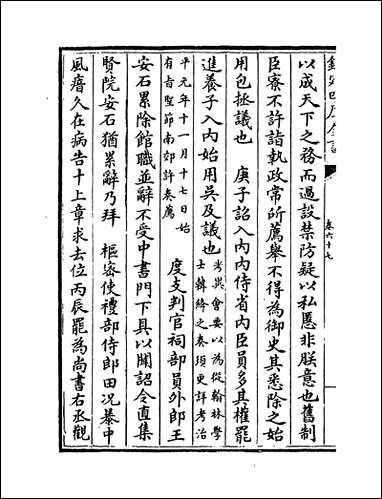 欽定四庫全書
卷六十七
以成天下之務而過設禁防疑以私慝非朕意也舊制
臣寮不許詣執政常所薦舉不得為御史其悉除之始
用包拯議也　庚子詔入内内侍省内臣員多其權罷
進養子入内始用吳及議也
考異會要以為從翰林學
士韓絳之奏須更詳考治
平元年十一月十七日始
有㫖聖節南郊許奏薦
度支判官祠部員外郎王
安石累除館職並辭不受中書門下具以聞詔令直集
賢院安石猶累辭乃拜　樞密使禮部侍郎田况暴中
風瘖久在病告十上章求去位丙辰罷為尚書右丞觀